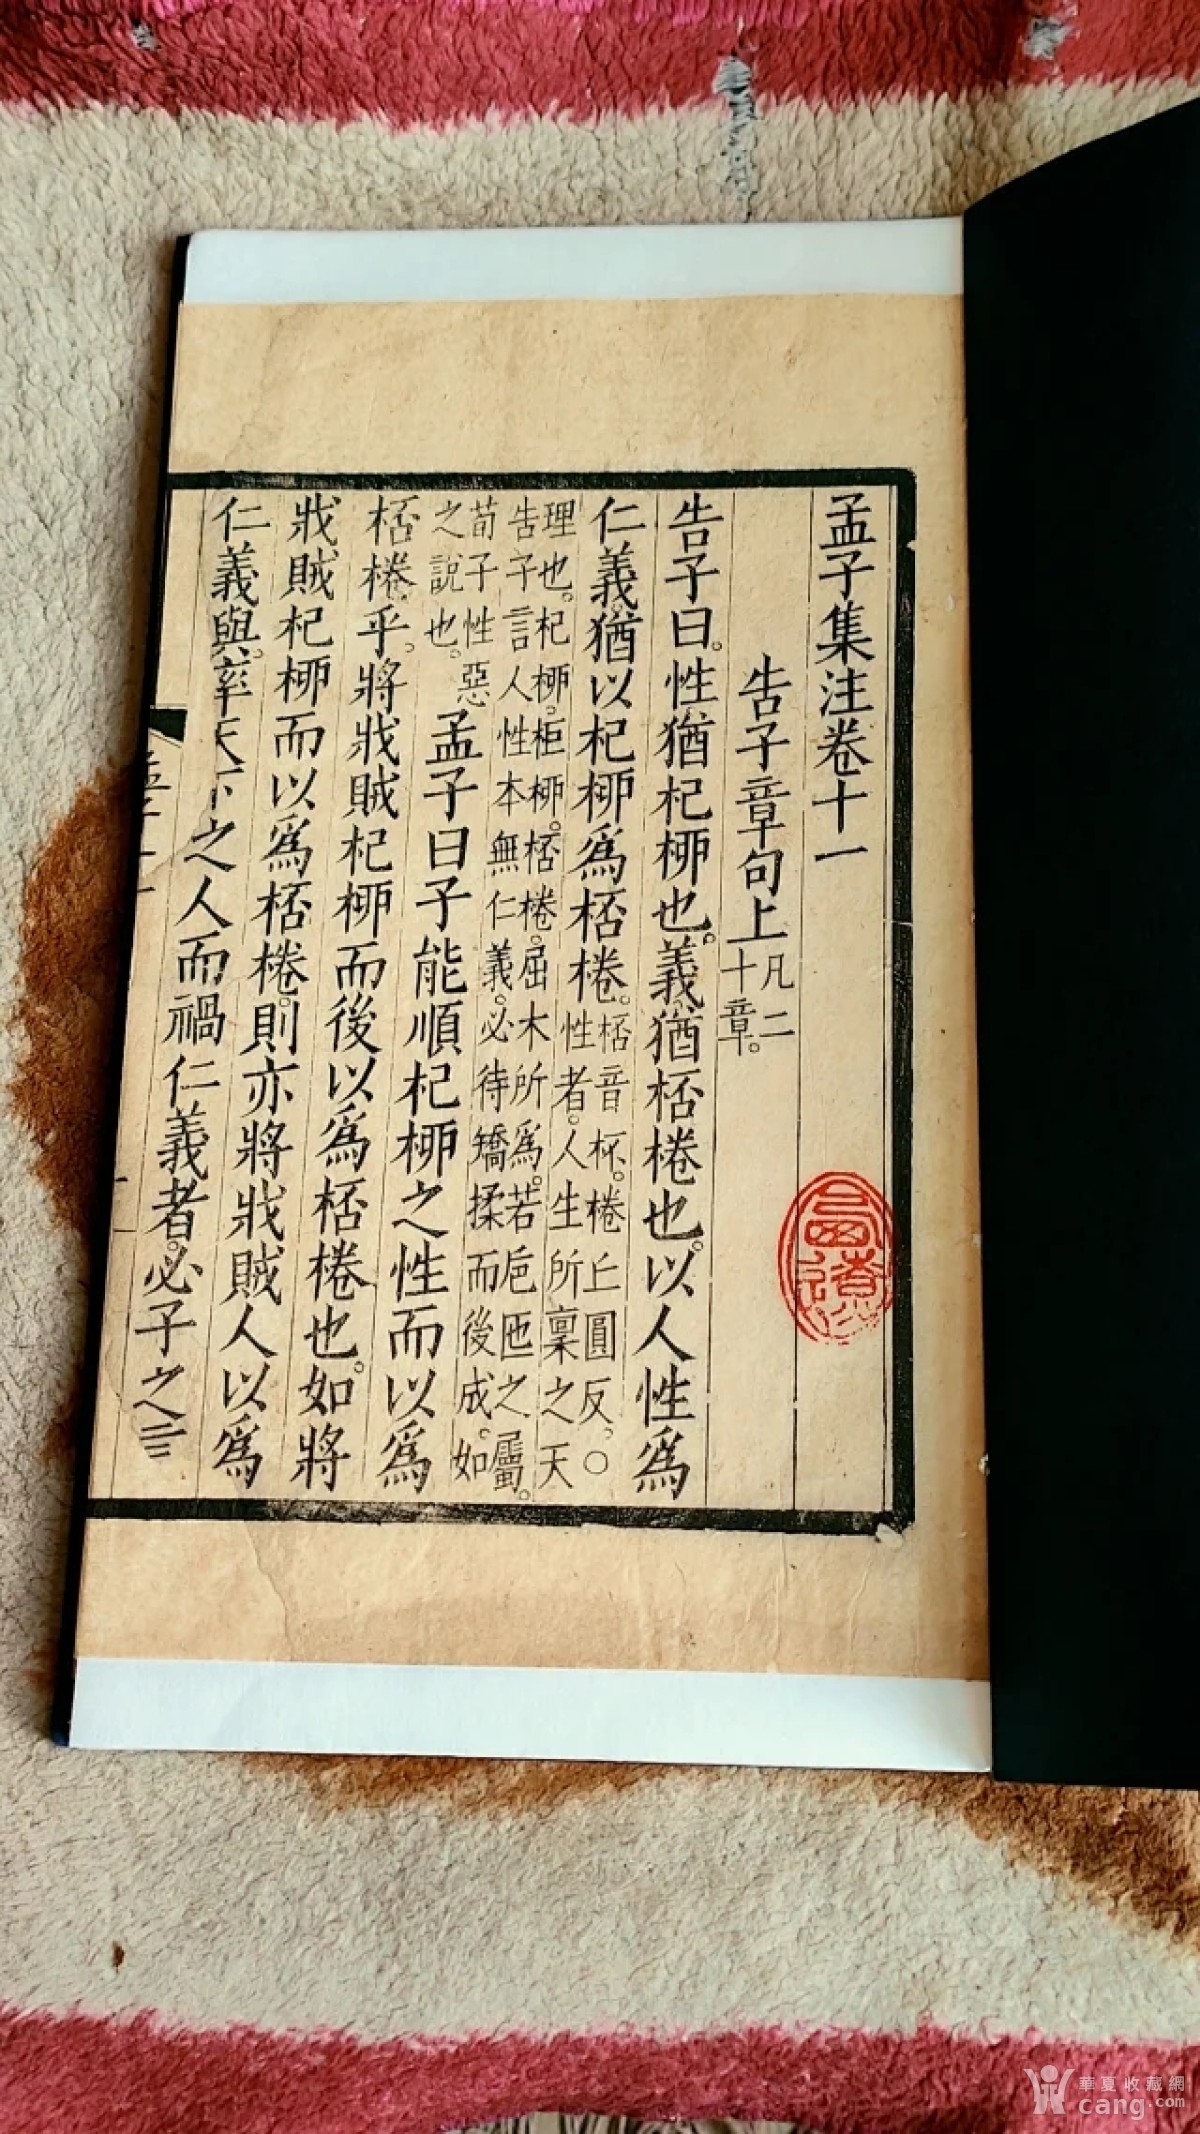 孟子集注卷十一
告子章句上凡二
十章。
告子曰。性猶杞柳也。義猶桮棬也。以人性爲
仁義。猶以杞柳爲桮棬。桮音杯。棬丘圓反。○
性者。人生所稟之天
理也。杞柳。柜柳。桮棬。屈木所爲。若巵匜之屬。
告子言人性本無仁義。必待矯揉而後成。如
荀子性惡
之說也。孟子曰子能順杞柳之性而以爲
桮棬乎。將戕賊杞柳而後以爲桮棬也。如將
戕賊杞柳而以爲桮棬。則亦將戕賊人以爲
仁義與。率天下之人而禍仁義者。必子之言
華夏收藏網
cang.com